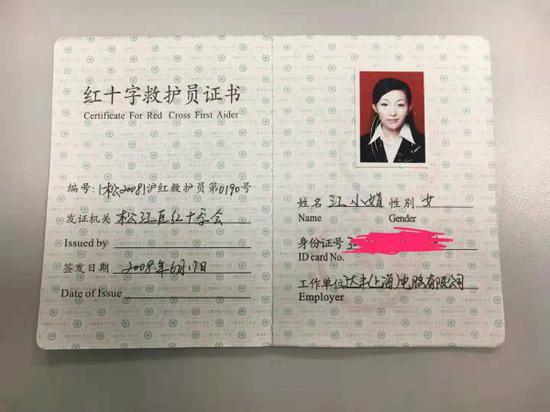 红十字救护员证书
Certificate For Red Cross First Aider
编号:(松2008)沪红救护员第0190号
发证机关 松江区红十字会
Issued by
签发日期 2008年6月17日
Date of Issue
姓名 江小娟 性别 女
Name Gender
身份证号
ID card No.
工作单位 达丰(上海)电脑有限公司
Employer